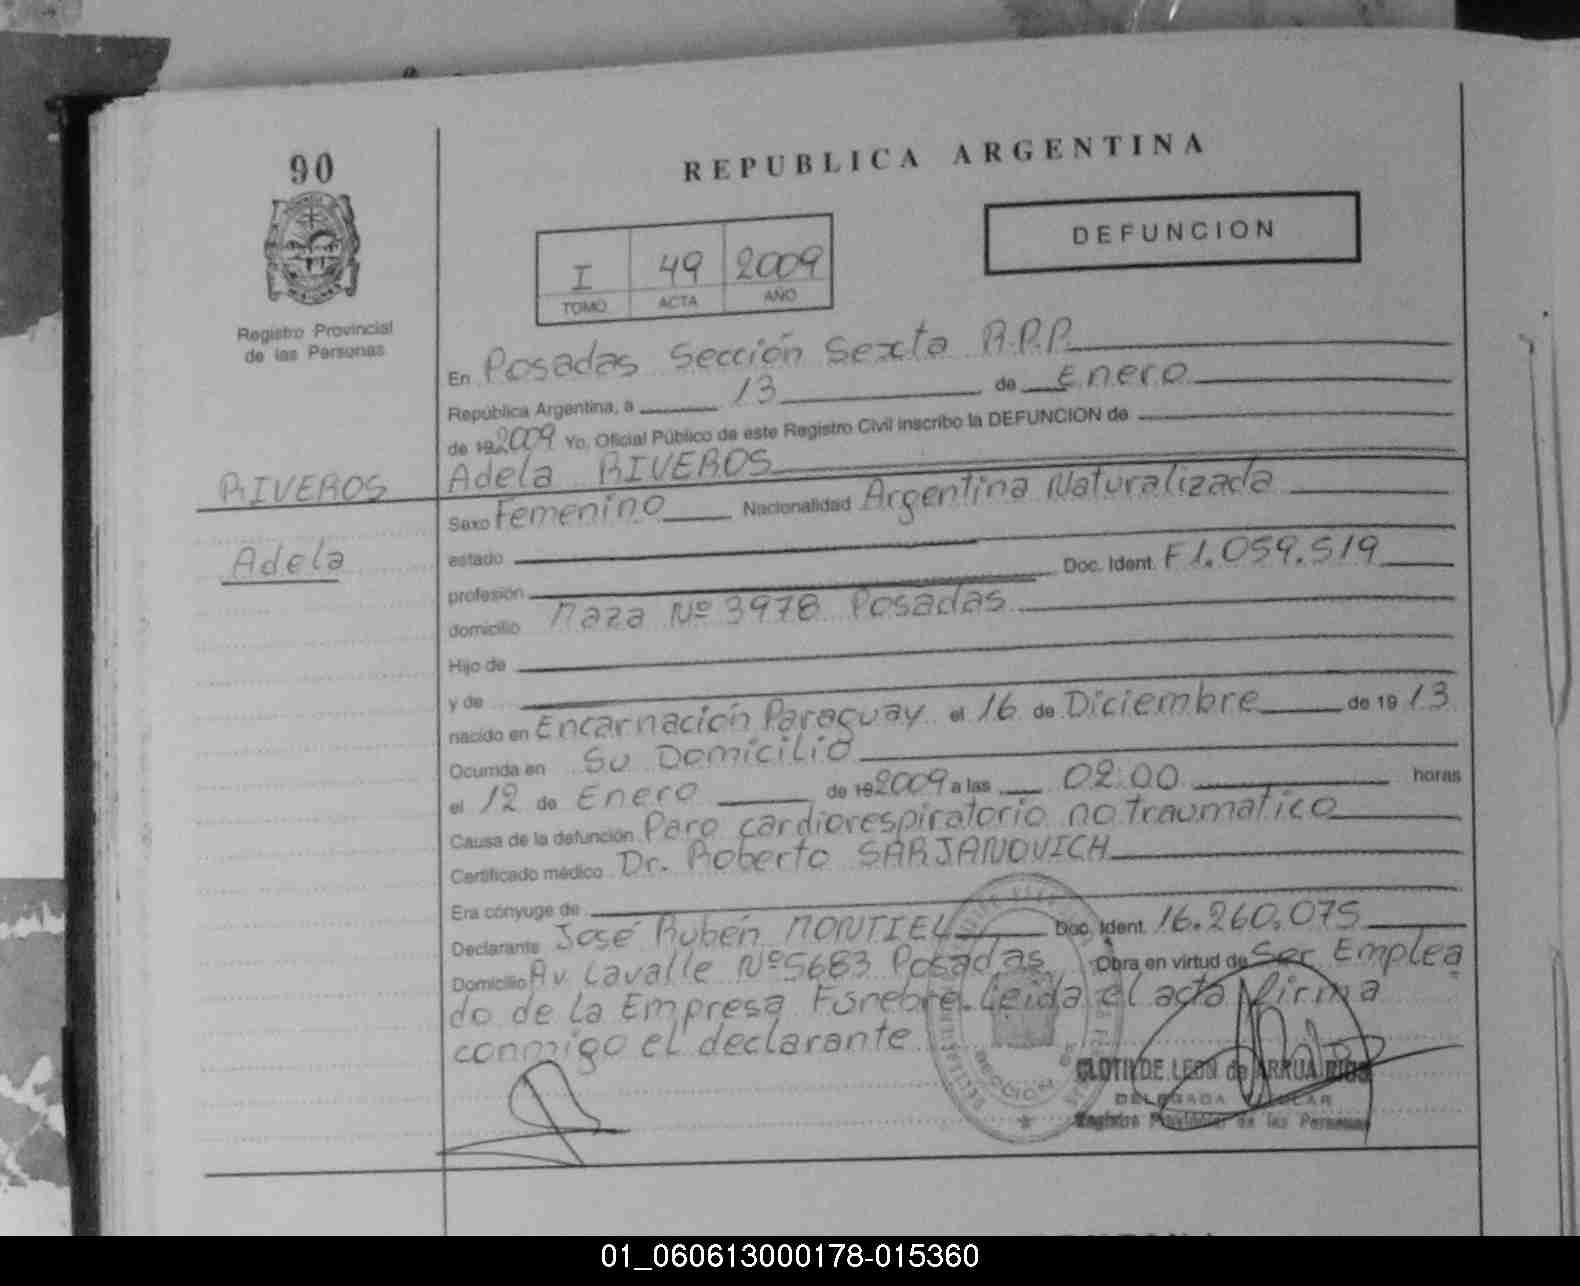 90
Registro Provincial
de las Personas
REPUBLICA ARGENTINA
DEFUNCION
I 49 2009
TOMO ACTA AÑO
En Posadas Sección Sexta R.P.P.
República Argentina, a 13 de Enero
de 19 2009 Yo, Oficial Público de este Registro Civil inscribo la DEFUNCION de
RIVEROS
Adela
Adela RIVEROS
Sexo Femenino Nacionalidad Argentina Naturalizada
estado
profesión Doc. Ident. F1.059.519
domicilio Maza Nº 3978 Posadas
Hijo de
y de
nacido en Encarnación Paraguay el 16 de Diciembre de 1913
Ocurrida en Su Domicilio
el 12 de Enero de 19 2009 a las 02:00 horas
Causa de la defunción Paro cardiorespiratorio no traumatico
Certificado médico Dr. Roberto SARJANOVICH
Era cónyuge de
Declarante José Rubén MONTIEL Doc. Ident. 16.260.075
Domicilio Av Lavalle Nº 5683 Posadas Obra en virtud de Ser Emplea
do de La Empresa Funebre. Leida el acta firma
conmigo el declarante
SECCION
CLOTILDE LEON de ARRUA RIOS
DELEGADA TITULAR
Registro Provincial de las Personas
01_060613000178-015360